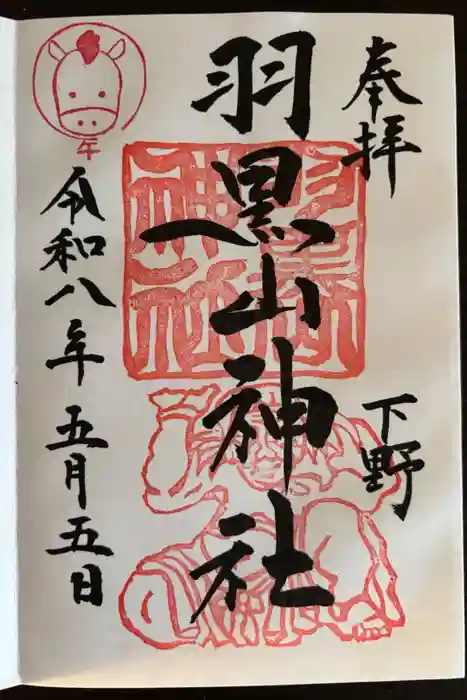 奉拝
下野
羽黒山神社
午
令和八年五月五日